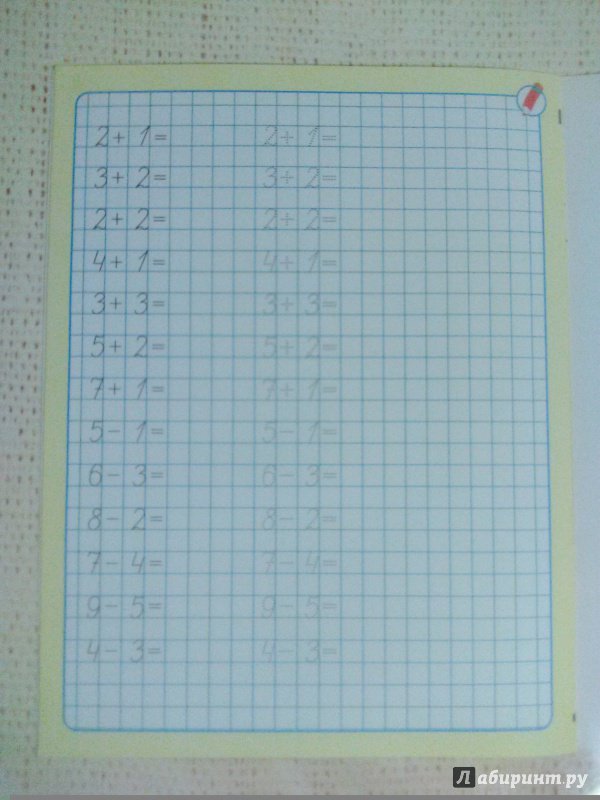 2 + 1 = 2 + 1 =
3 + 2 = 3 + 2 =
2 + 2 = 2 + 2 =
4 + 1 = 4 + 1 =
3 + 3 = 3 + 3 =
5 + 2 = 5 + 2 =
7 + 1 = 7 + 1 =
5 - 1 = 5 - 1 =
6 - 3 = 6 - 3 =
8 - 2 = 8 - 2 =
7 - 4 = 7 - 4 =
9 - 5 = 9 - 5 =
4 - 3 = 4 - 3 =
Лабиринт.ру